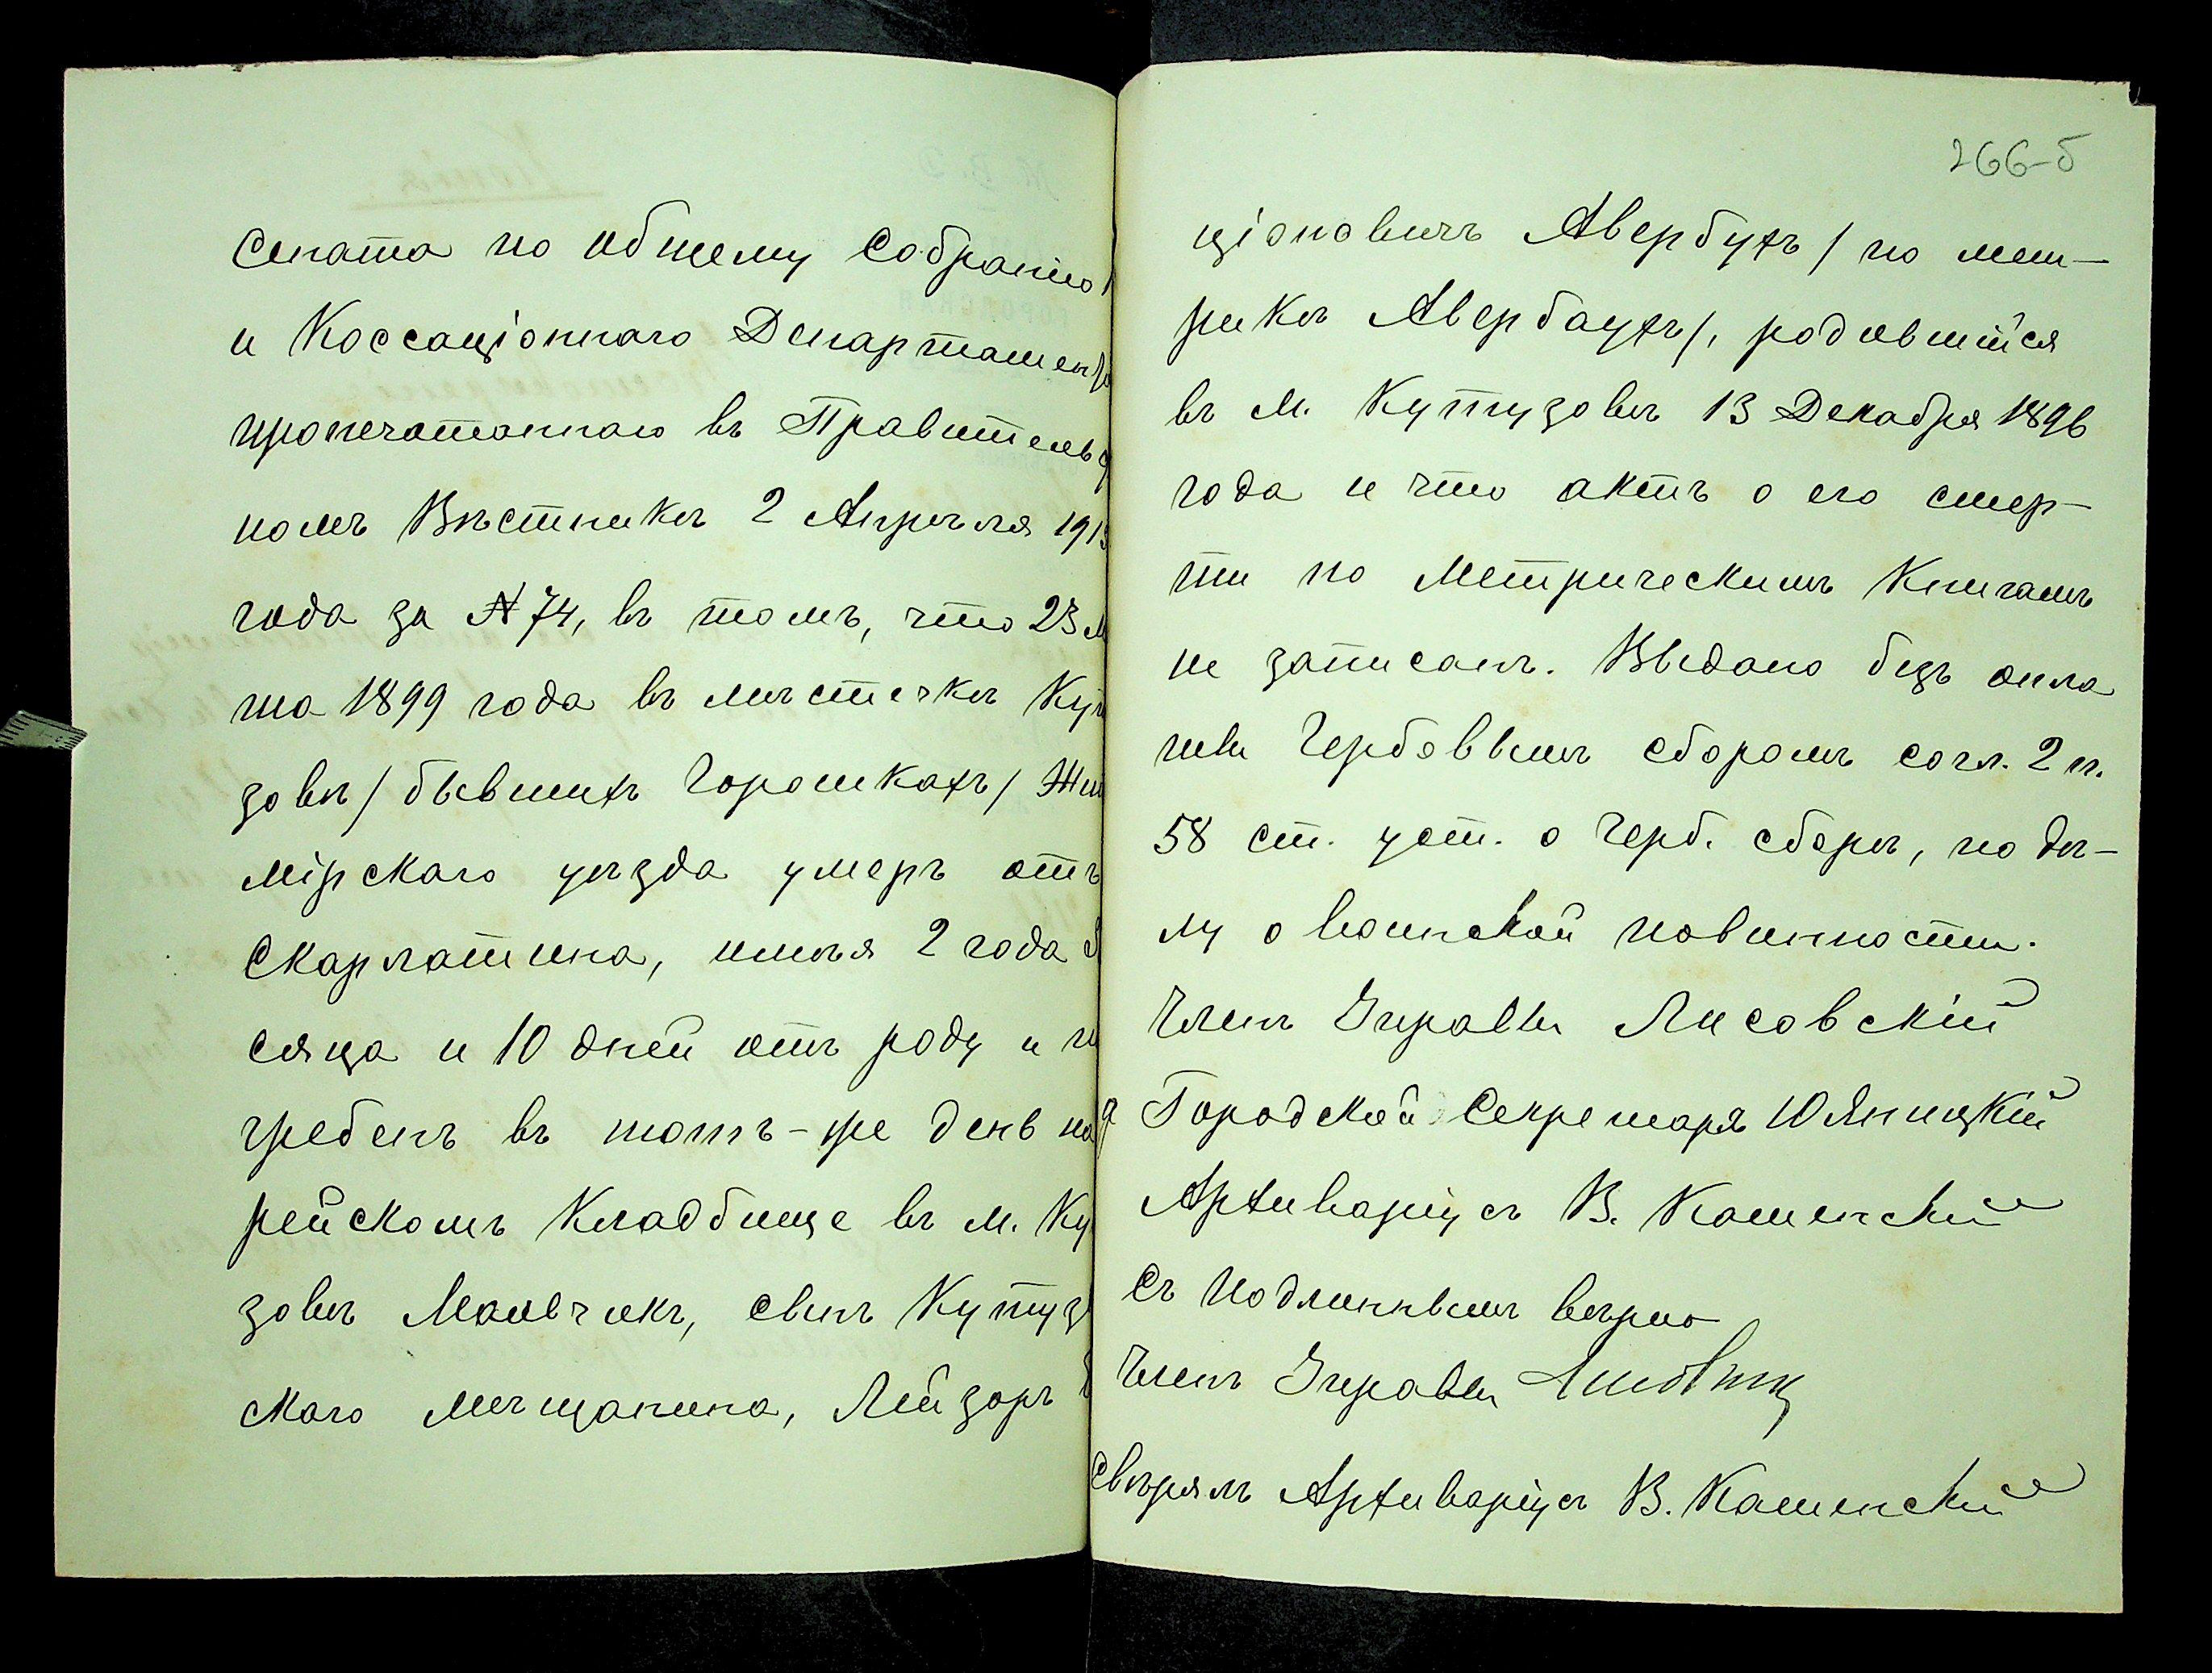 Сената по общему Собранію
и Коссаціоннаго Департамен
пропечатаннаго въ Правительс
номъ Вѣстникѣ 2 Апрѣля 1913
года за № 74, въ томъ, что 23 М
та 1899 года въ мѣстечкѣ Кут
зовѣ / бывшихъ Горошкахъ / Жит
мірскаго уѣзда умеръ отъ
Скарлатина, имѣя 2 года
сяца и 10 дней отъ роду и по
гребенъ въ тотъ-же день на
рейскомъ Кладбище въ м. Ку
зовѣ Мальчикъ, сынъ Кутуз
скаго мѣщанина, Лейзоръ
266-б
ціоновичъ Авербухъ / по мет-
рикѣ Авербаухъ /, родившійся
въ м. Кутузовѣ 13 Декабря 1896
года и что актъ о его смер-
ти по Метрическимъ Книгамъ
не записанъ. Выдано безъ опла
ты Гербовымъ сборомъ согл. 2 п.
58 ст. уст. о Герб. сборѣ, по дѣ-
лу о воинской повинности.
Членъ Управы Лисовскій
Городской Секретарь Ю Яницкій
Архиваріусъ В. Каменскій
Съ подлиннымъ вѣрно
Членъ Управы
Свѣрялъ Архиваріусъ В. Каменскій